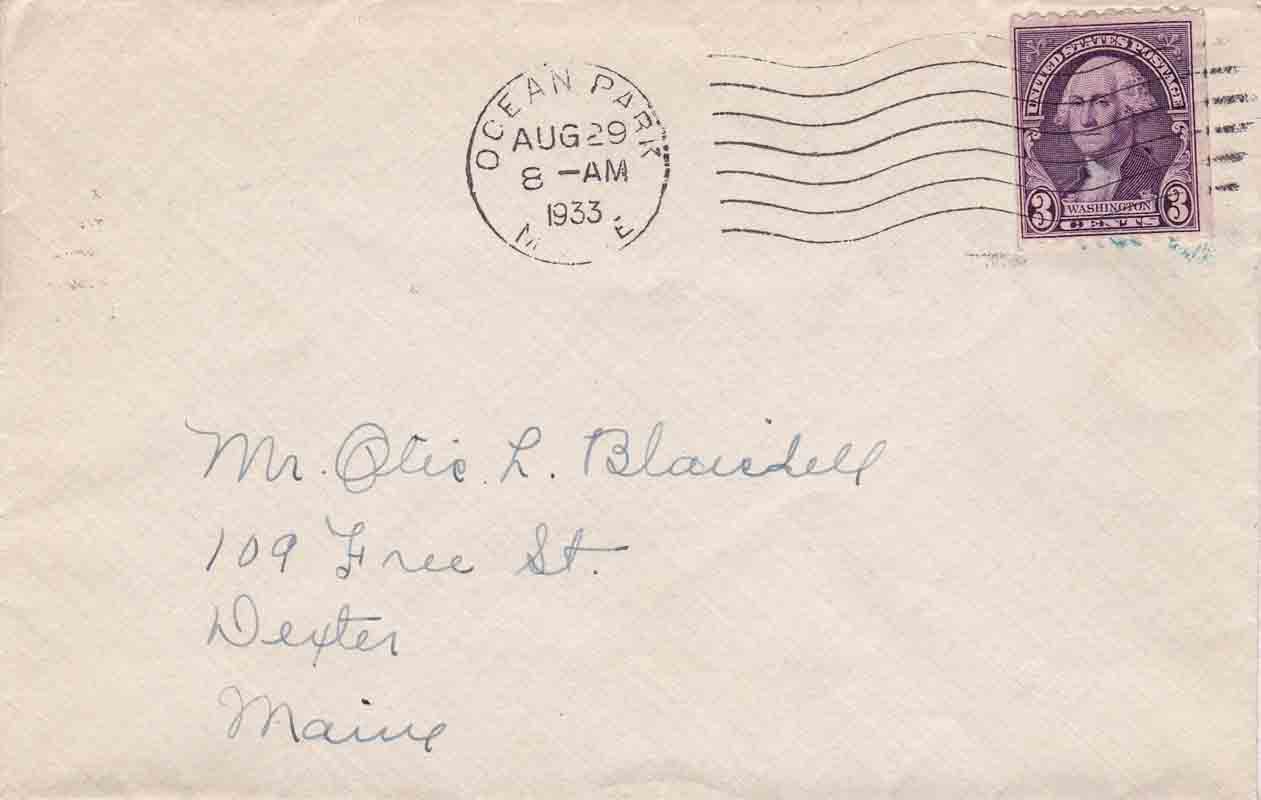 OCEAN PARK
AUG 29
8 –AM
1933
M E
UNITED STATES POSTAGE
3 WASHINGTON 3
CENTS
Mr. Otis L. Blaisdell
109 Free St.
Dexter
Maine